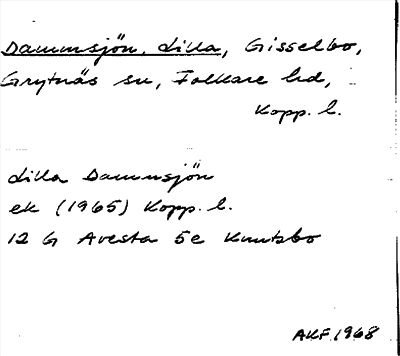 Dammsjön, Lilla, Gisselbo,
Grytnäs sn, Folkare hd,
Kopp. l.
Lilla Dammsjön
ek (1965) Kopp. l.
12 G Avesta 5e Knutsbo
AKF 1968